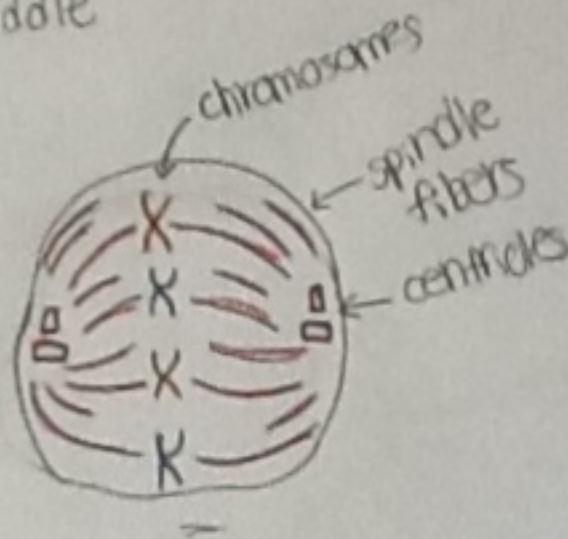 ddle
chromosomes
spindle
fibers
centrioles